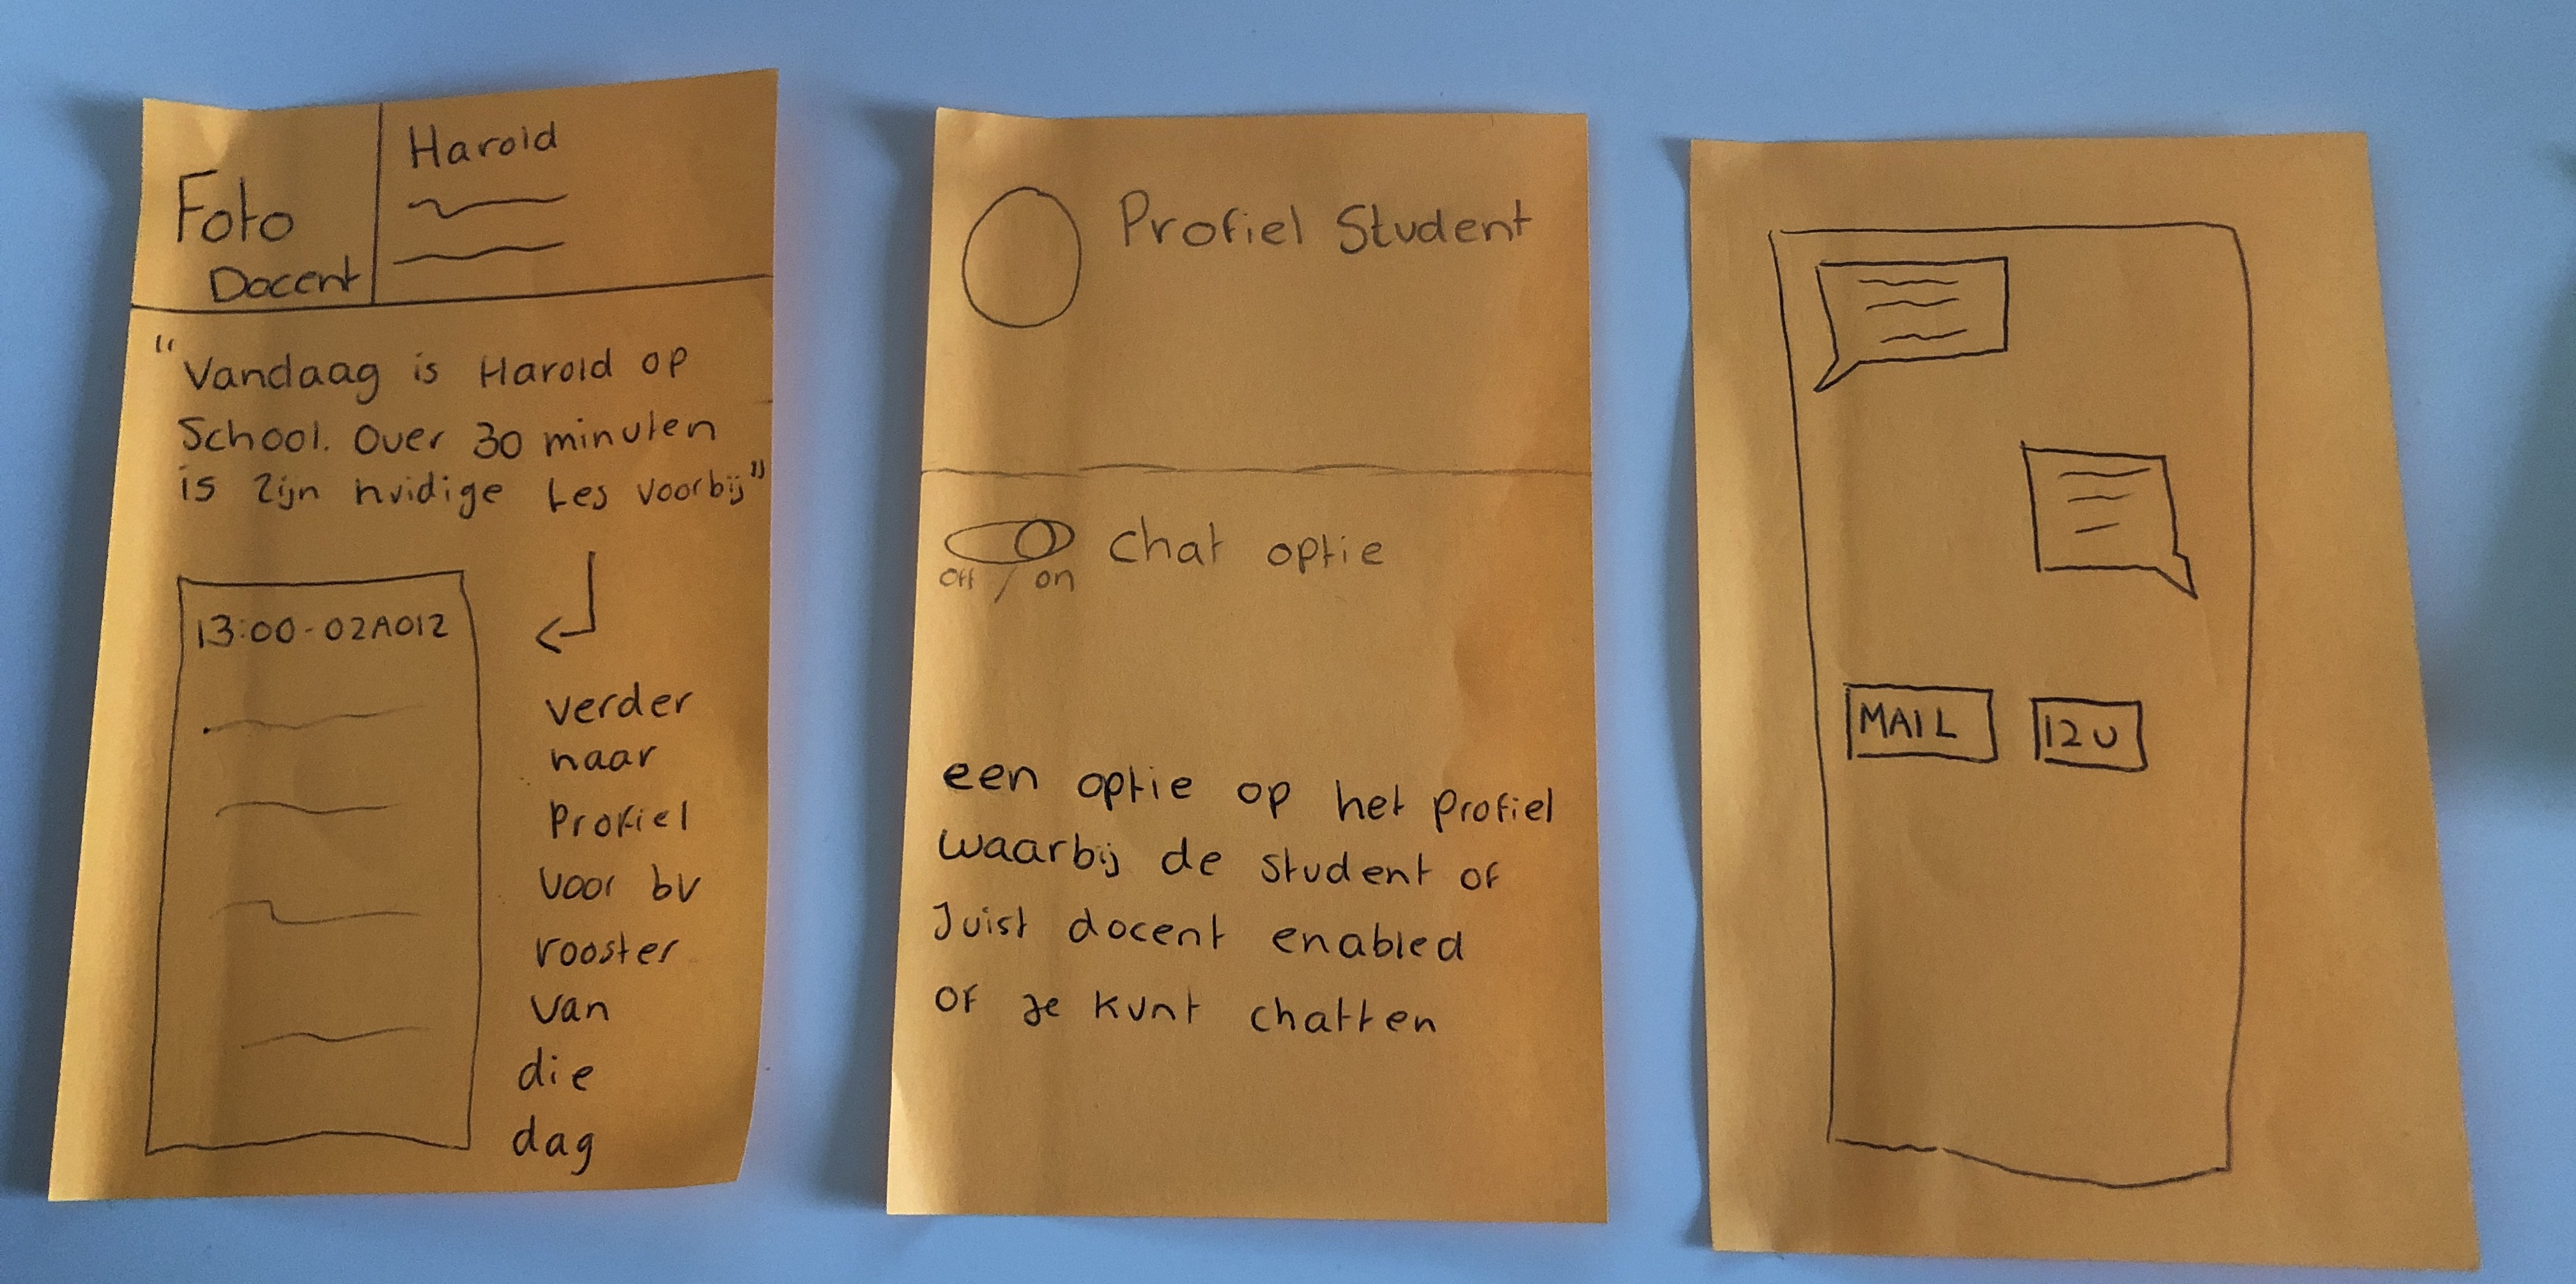 Foto
Docent
Harold
"Vandaag is Harold op
School. Over 30 minuten
is zijn huidige les voorbij"
13:00-02A012
verder
naar
Profiel
voor bv
rooster
van
die
dag
Profiel Student
Off / on
Chat optie
een optie op het profiel
waarbij de student of
Juist docent enabled
of je kunt chatten
MAIL
12U